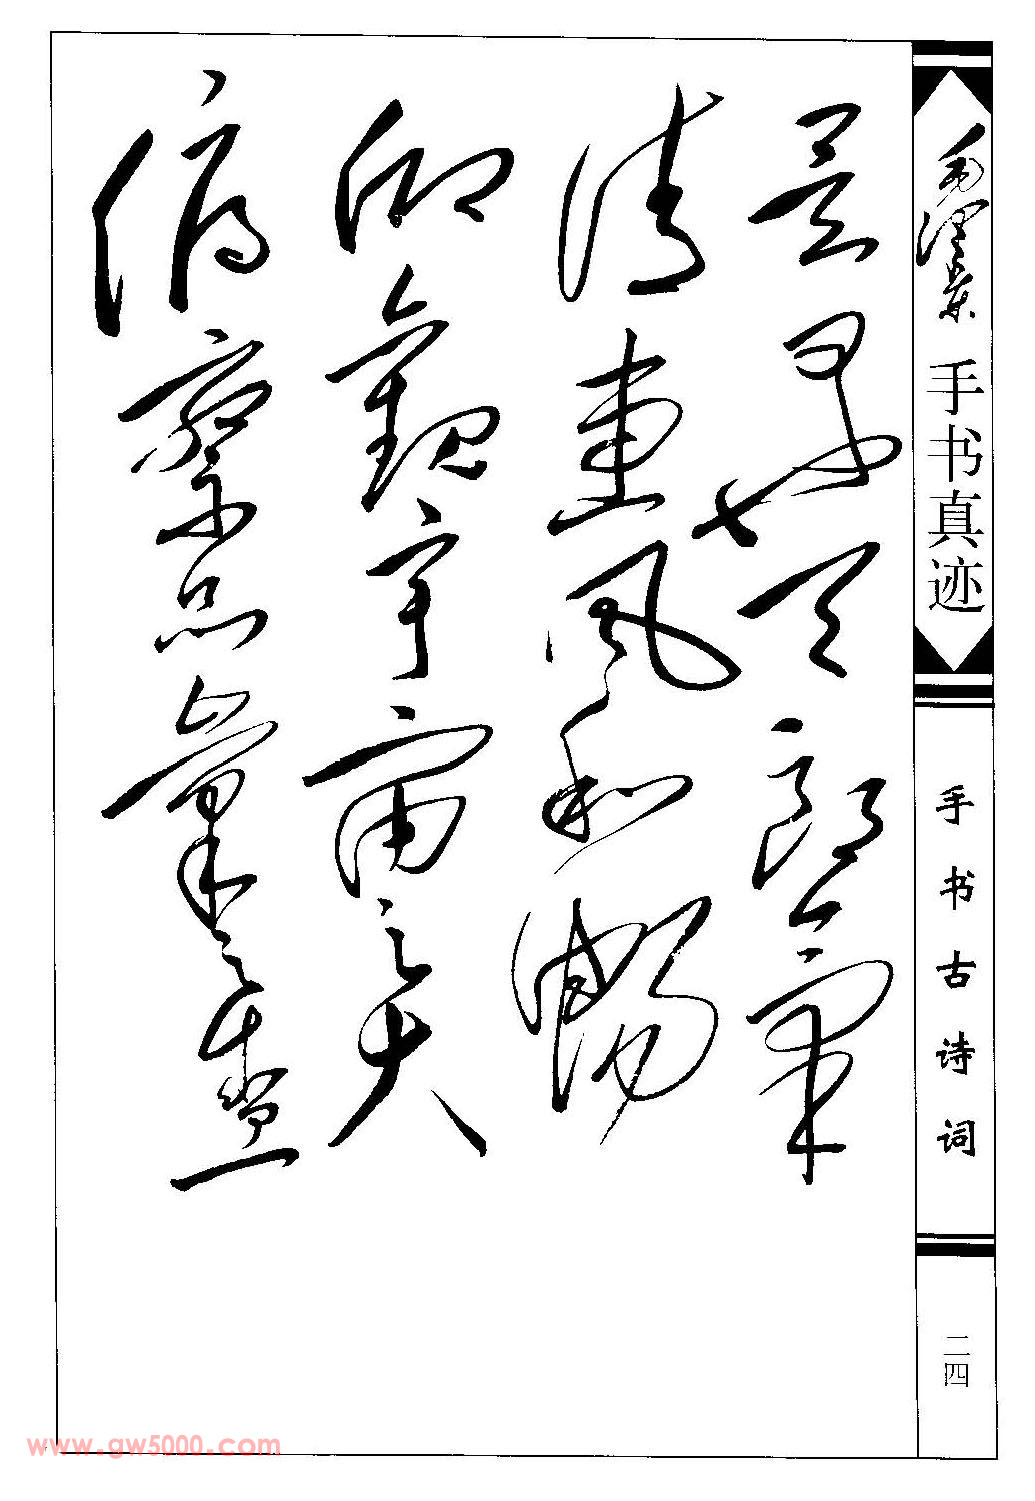 毛澤東
手书真迹
手书古诗词
二四
是日也天朗氣
清惠風和暢
仰觀宇宙之大
俯察品類之盛
www.gw5000.com